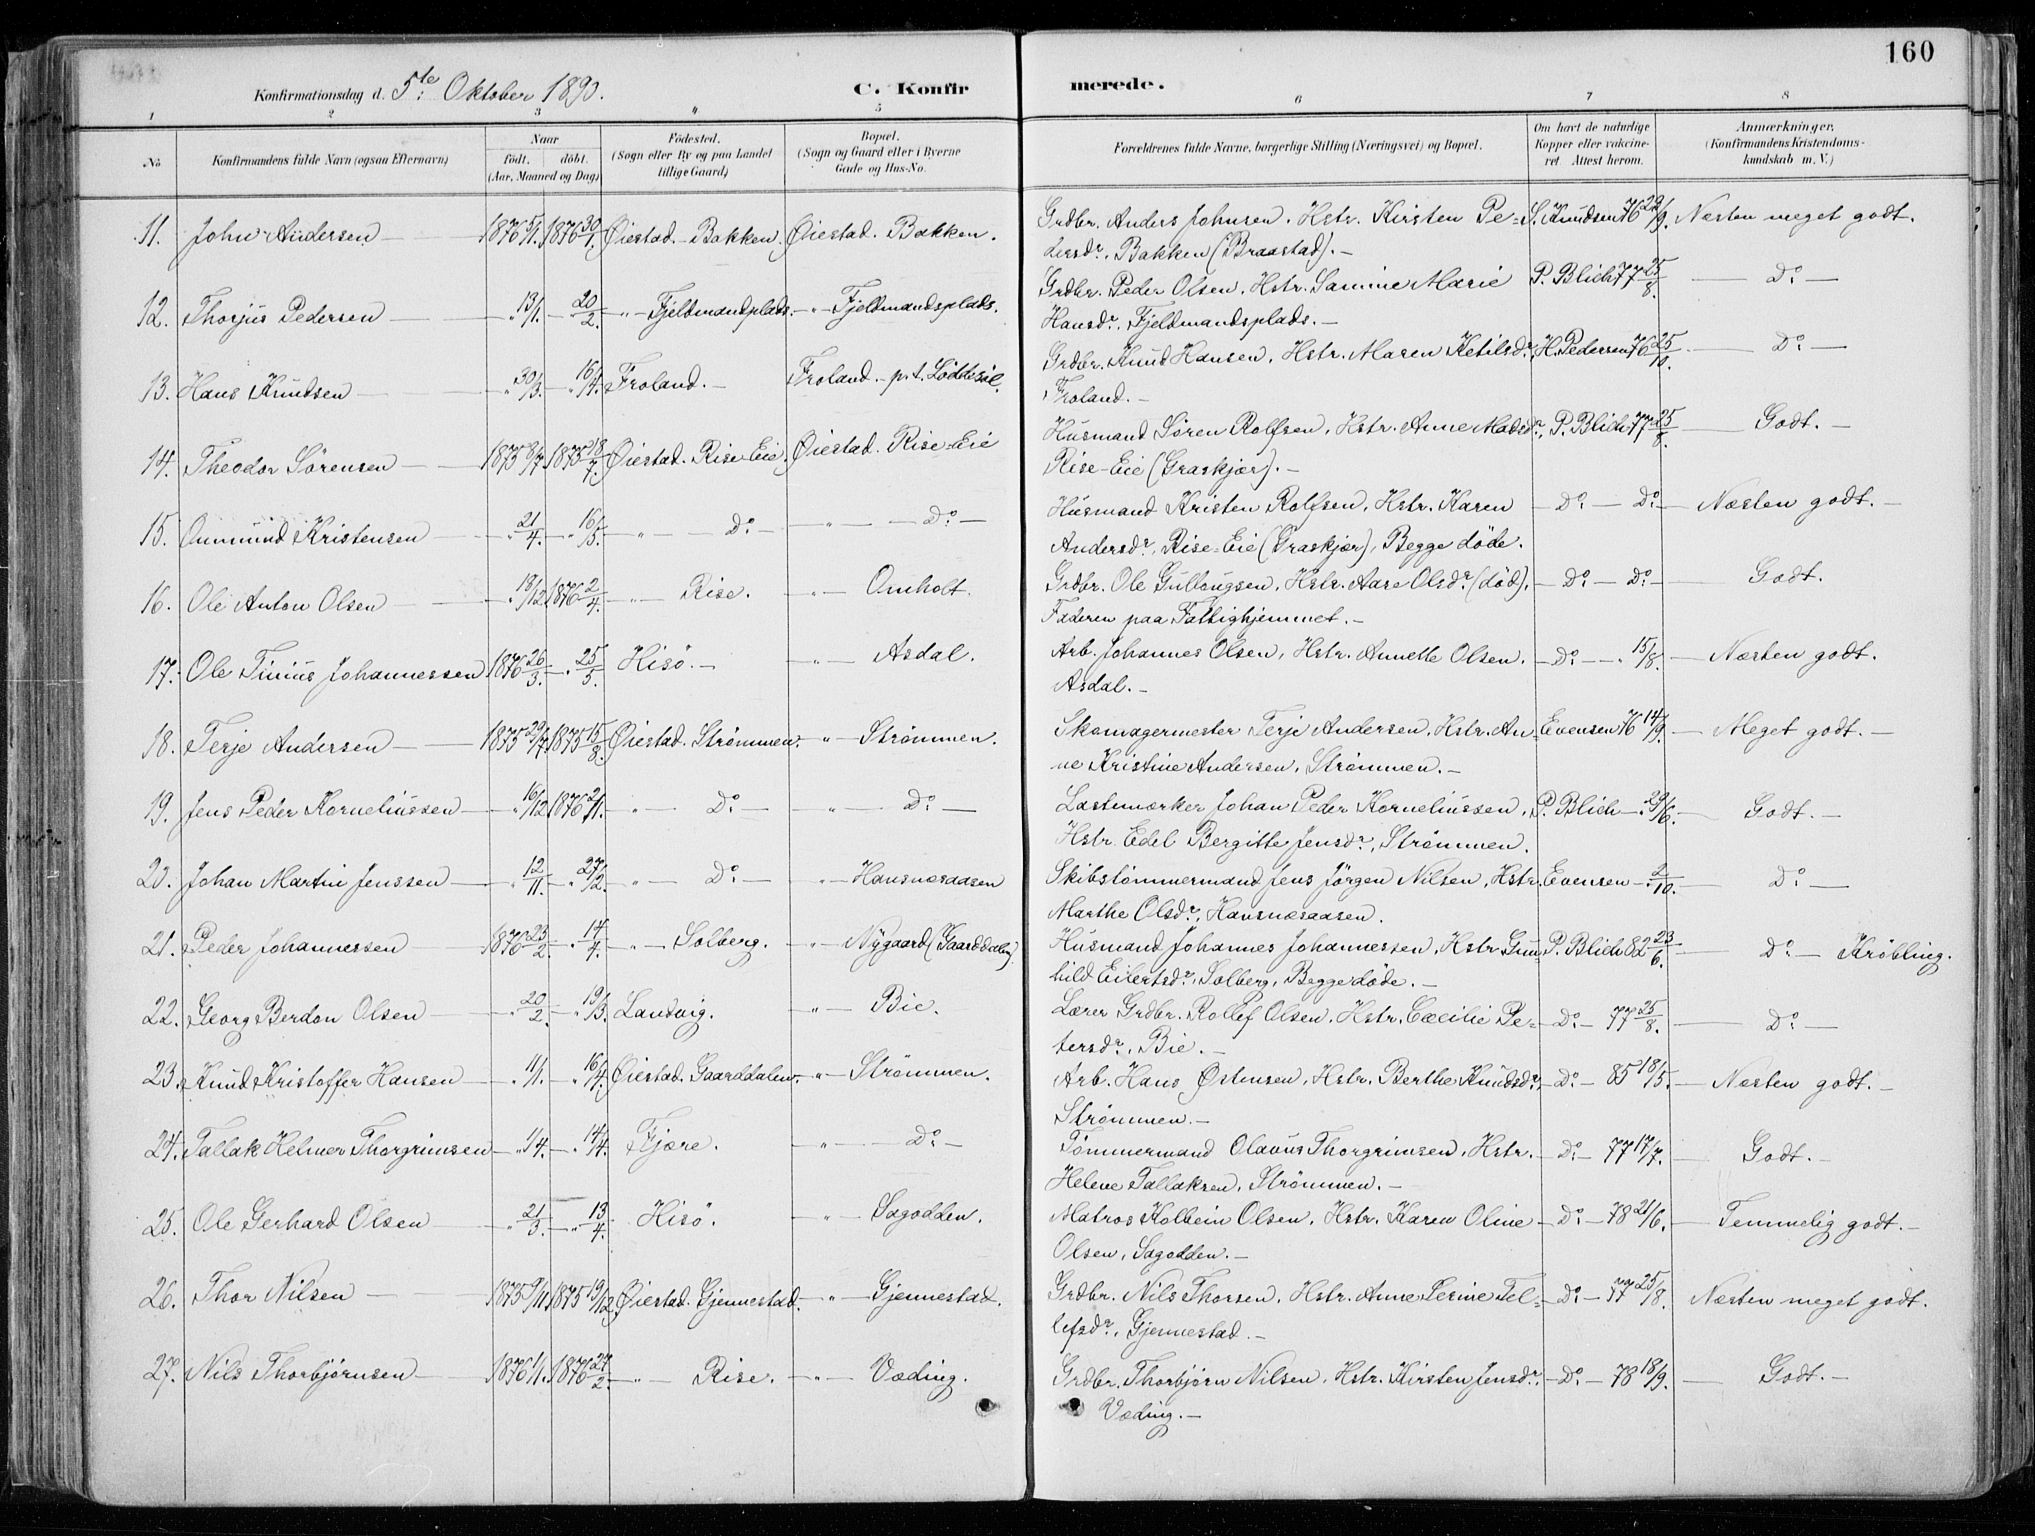 160
Konfirmationsdag d. 5te Oktober 1890.
C. Konfirmerede.
1 2 3 4 5 6 7 8
No
Konfirmandens fulde Navn (ogsaa Efternavn)
Naar
født. døbt.
(Aar, Maaned og Dag)
Fødested.
(Sogn eller By og paa Landet tillige Gaard)
Bopæl.
(Sogn og Gaard eller i Byerne Gade og Hus-No.
Forældrenes fulde Navne, borgerlige Stilling (Næringsvei) og Bopæl.
Om havt de naturlige Kopper eller vakcineret. Attest herom.
Anmærkninger.
(Konfirmandens Kristendomskundskab m. V.)
11. John Andersen — 1876 5/1. 1876 30/1. Øiestad. - Bakken. Øiestad. Bakken. Grdbr. Anders Johnsen. Hstr. Kirsten Pe= S. Knudsen 76 29/9. Næsten meget godt.
dersdr. Bakken (Braastad). —
12. Thorjus Pedersen — " 13/1. — " 20/2. — " — Fjeldmandsplads. — " — Fjeldmandsplads. Grdbr. Peder Olsen. Hstr. Samine Marie P. Blich 77 25/8. — Do. —
Hansdr. Fjeldmandsplads. —
13. Hans Knudsen — " 30/3. — " 16/4. Froland. — Froland. - p. t. Løddesøl. Grdbr. Knud Hansen. Hstr. Maren Ketilsdr. H. Pedersen 76 25/10. — Do. —
Froland. —
14. Theodor Sørensen — 1875 8/7. 1875 18/7. Øiestad. Rise-Eie. Øiestad. Rise-Eie Husmand Søren Rolfsen. Hstr. Anne Madsdr. P. Blich 77 25/8. — Godt. —
Rise-Eie (Graskjær). —
15. Aanmund Kristensen — " 21/4. — " 16/5. — " — Do. — " — Do. — Husmand Kristen Rolfsen. Hstr. Karen — Do. — Do. — Næsten godt. —
Andersdr. Rise-Eie (Graskjær), Begge døde.
16. Ole Anton Olsen — " 18/12. 1876 2/4. — " — Rise. — " — Omholt. Grdbr. Ole Gullougsen. Hstr. Aase Olsdr. (død). — Do. — Do. — Godt.
Faderen paa Fattighjemmet. —
17. Ole Tinius Johannessen 1876 26/3. — " 25/5. Hisø. — — " — Asdal. Arb. Johannes Olsen. Hstr. Annette Olsen. — Do. — " 15/8. — Næsten godt.
Asdal. —
18. Terje Andersen — 1875 29/7. 1875 15/8. Øiestad. Strømmen. — " — Strømmen. Skomagermester Terje Andersen. Hstr. An= Evensen 76 14/9. — Meget godt. —
ne Kristine Andersen. Strømmen. —
19. Jens Peder Korneliussen — " 16/12. 1876 2/1. — " — Do. — " — Do. — Lastemærker Johan Peder Korneliussen. P. Blich — " 29/6. — Godt. —
Hstr. Edel Bergitte Jensdr. Strømmen.
20. Johan Martin Jenssen — " 12/11. — " 27/2. — " — Do. — — " — Havsnæsaasen Skibstømmermand Jens Jørgen Nilsen. Hstr. Evensen — " 2/10. — Do. —
Marthe Olsdr. Havsnæsaasen.
21. Peder Johannessen — 1876 23/2. — " 14/4. — " — Solberg. — " — Nygaard (Gaarddalen). Husmand Johannes Johannessen. Hstr. Gun= P. Blich 82 23/6. — Do. — Krøbling.
hild Eilertsdr. Solberg, Begge døde. —
22. Georg Berdon Olsen — " 20/2. — " 19/3. Landvig. — " — Bie. Lærer Grdbr. Rollef Olsen. Hstr. Cæcilie Pe= — Do. — 77 25/8. — Do. —
tersdr. Bie. —
23. Knud Kristoffer Hansen — " 1/1. — " 16/4. Øiestad. Gaarddalen. — " — Strømmen. Arb. Hans Østensen. Hstr. Berthe Knudsdr. — Do. — 85 18/5. — Næsten godt. —
Strømmen. —
24. Tallak Helmer Thorgrimsen — " 1/4. — " 14/4. Fjære. — " — Do. — Tømmermand Olavus Thorgrimsen. Hstr. — Do. — 77 17/7. — Godt. —
Helene Tallaksen. Strømmen. —
25. Ole Gerhard Olsen — " 21/3. — " 13/4. Hisø. — " — Sagodden. Matros Kolbein Olsen. Hstr. Karen Oline — Do. — 78 21/6. — Temmelig godt. —
Olsen. Sagodden. —
26. Thor Nilsen — 1875 9/11. 1875 19/12. Øiestad. Gjennestad. — " — Gjennestad. Grdbr. Nils Thorsen. Hstr. Anne Serine Tel= — Do. — 77 25/8. Næsten meget godt.
lefsdr. Gjennestad. —
27. Nils Thorbjørnsen — 1876 1/1. 1876 27/2. — " — Rise. — " — Væding. Grdbr. Thorbjørn Nilsen. Hstr. Kirsten Jensdr. — Do. — 78 18/9. — Godt. —
Væding. —